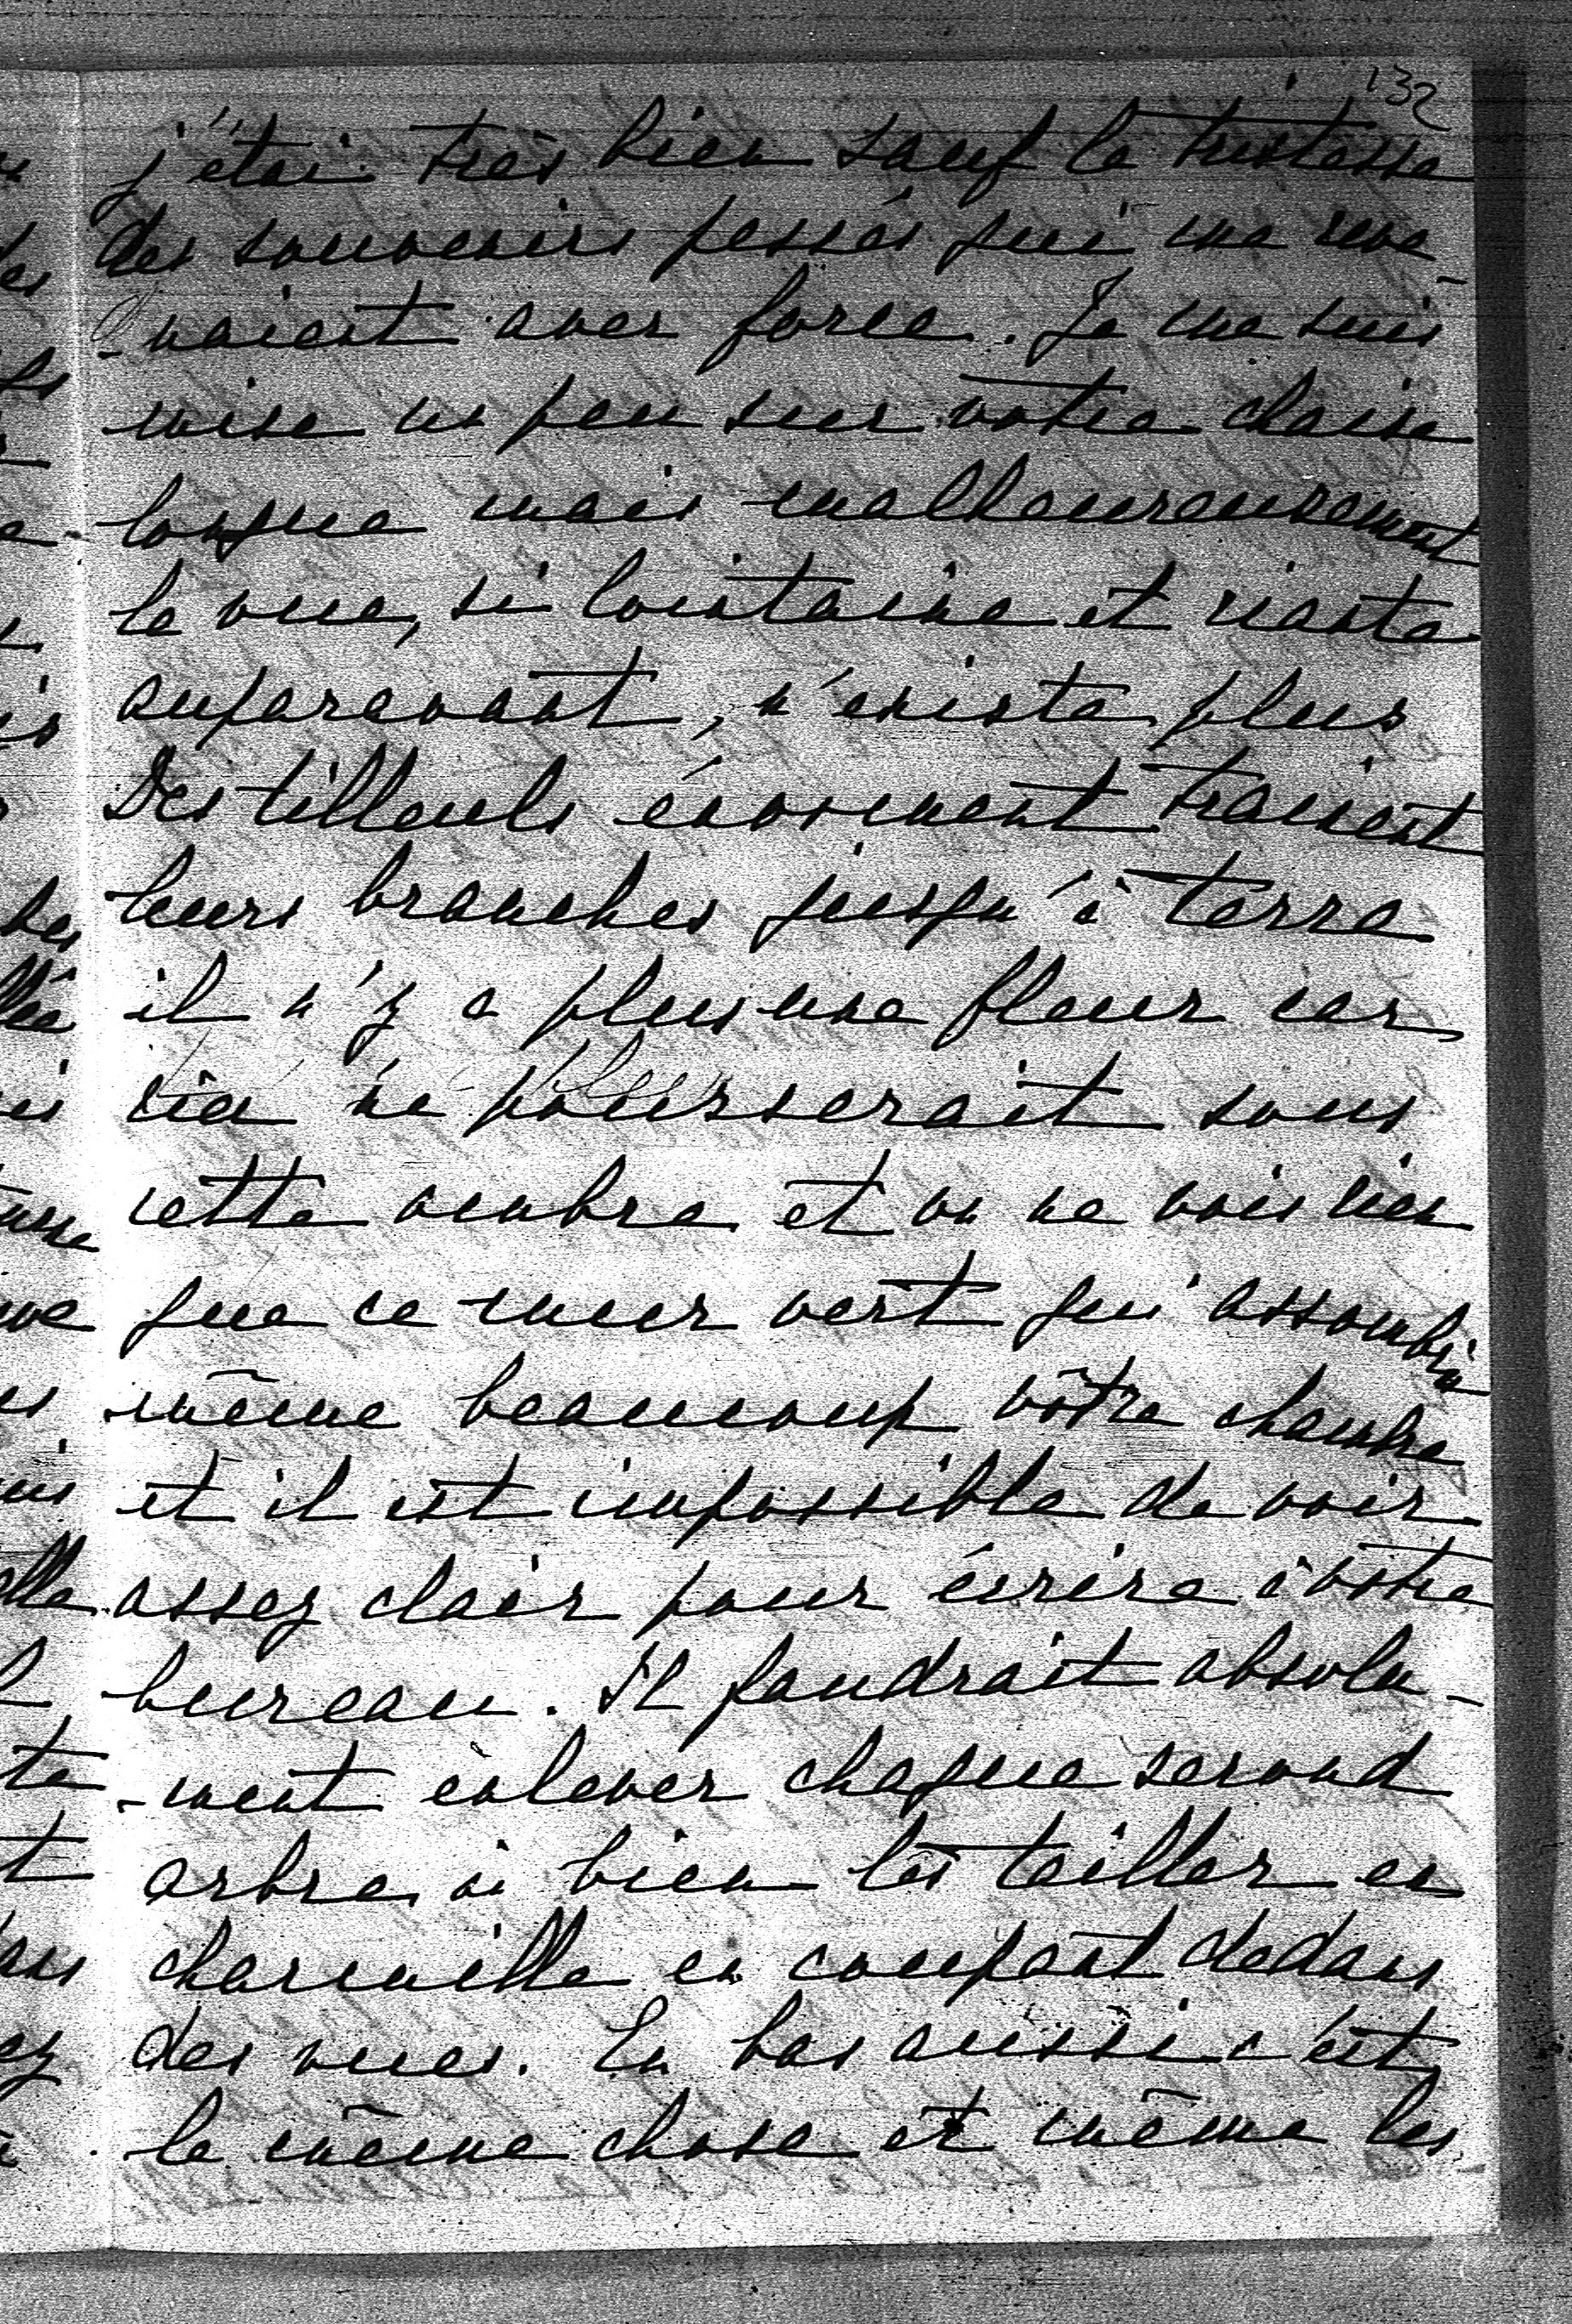 132
j'étai très bien sauf la tristesse
des souvenirs passés qui me reve-
-naient avec force. Je me suis
mise un peu sur votre chaise
longue mais malheureusement
la vue, si lointaine et riante
auparavant, n'existe plus
Des tilleuls énormement trainent
leurs branches jusqu'à terre
il n'y a plus une fleur car
rien ne pousserait sous
cette ombre et on ne vois rien
que ce mur vert qui assombri
même beaucoup vôtre chambre
et il est impossible de voir
assez clair pour écrire à votre
bureau. Il faudrait absolu-
-ment enlever chaque second
arbre ou bien les tailler en
charmille en coupant dedans
des vues. En bas aussi c'est
la même chose et même les